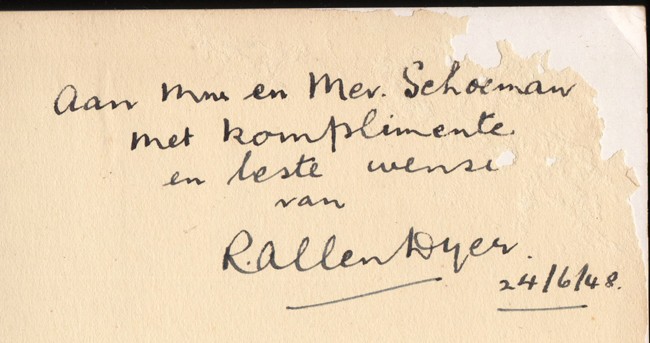 Aan Mnr en Mev. Schoeman
met komplimente
en beste wense
van
R. Allen Dyer.
24/6/48.